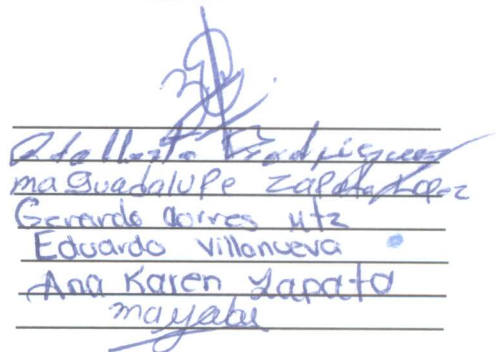 Rodriguez
ma Guadalupe Zapata Lopez
Gerardo torres utz
Eduardo Villanueva
Ana Karen Zapata